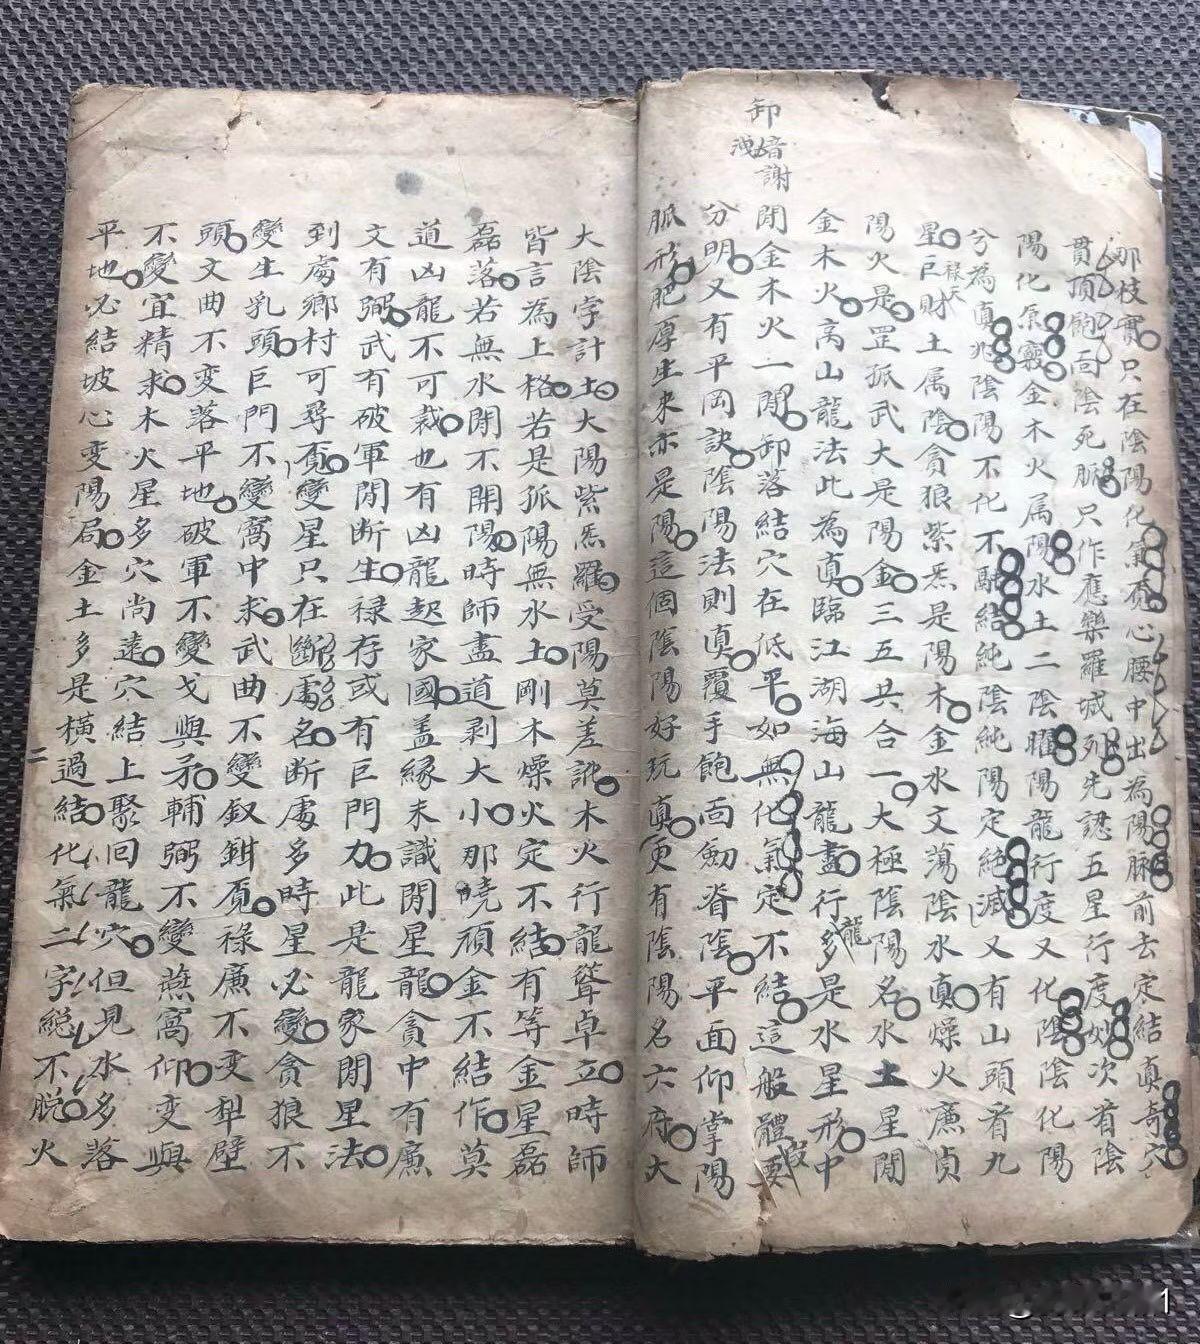 卸音謝
洩
那枝實只在陰陽化氣覔心腰中出為陽脉前去定結真奇穴
貫頂飽面陰死脈只作應樂羅城列先認五星行度妙次看陰
陽化原竅金木火属陽水土二陰曜陽龍行度又化陰陰化陽
兮為真兆陰陽不化不融結純陰純陽定絕滅又有山頭看九
星巨祿天財土属陰貪狼紫炁是陽木金水文蕩陰水真燥火廉貞
陽火是罡孤武大是陽金三五共合一大極陰陽名水土星閒
金木火高山龍法此為真臨江湖海山龍盡行龍多是水星形中
閒金木火一閒卸落結穴在低平如無化氣定不結這般體段要
分明又有平岡訣陰陽法則真覆手飽面劒脊陰平面仰掌陽
脈形肥厚生來亦是陽這個陰陽好玩真更有陰陽名六府大
大陰字計土大陽紫炁羅受陽莫差訛木火行龍聳卓立時師
皆言為上格若是孤陽無水土剛木燥火定不結有等金星磊
磊落若無水開不開陽時師盡道剥大小那曉頑金不結作莫
道凶龍不可裁也有凶龍起家國盖緣未識閒星龍貪中有廉
文有弼武有破軍閒断生禄存或有巨門力此是龍家閒星法
到處鄉村可尋覔變星只在斷處名断處多時星必變貪狼不
變生乳頭巨門不變窩中求武曲不變釵鉗覔祿廉不变犁壁
頭文曲不变落平地破軍不變戈與矛輔弼不變燕窩仰变與
不變宜精求木火星多穴尚遠穴結上聚回龍穴但見水多落
平地必結坡心变陽局金土多是橫過結化氣二字絕不脫火
二
1